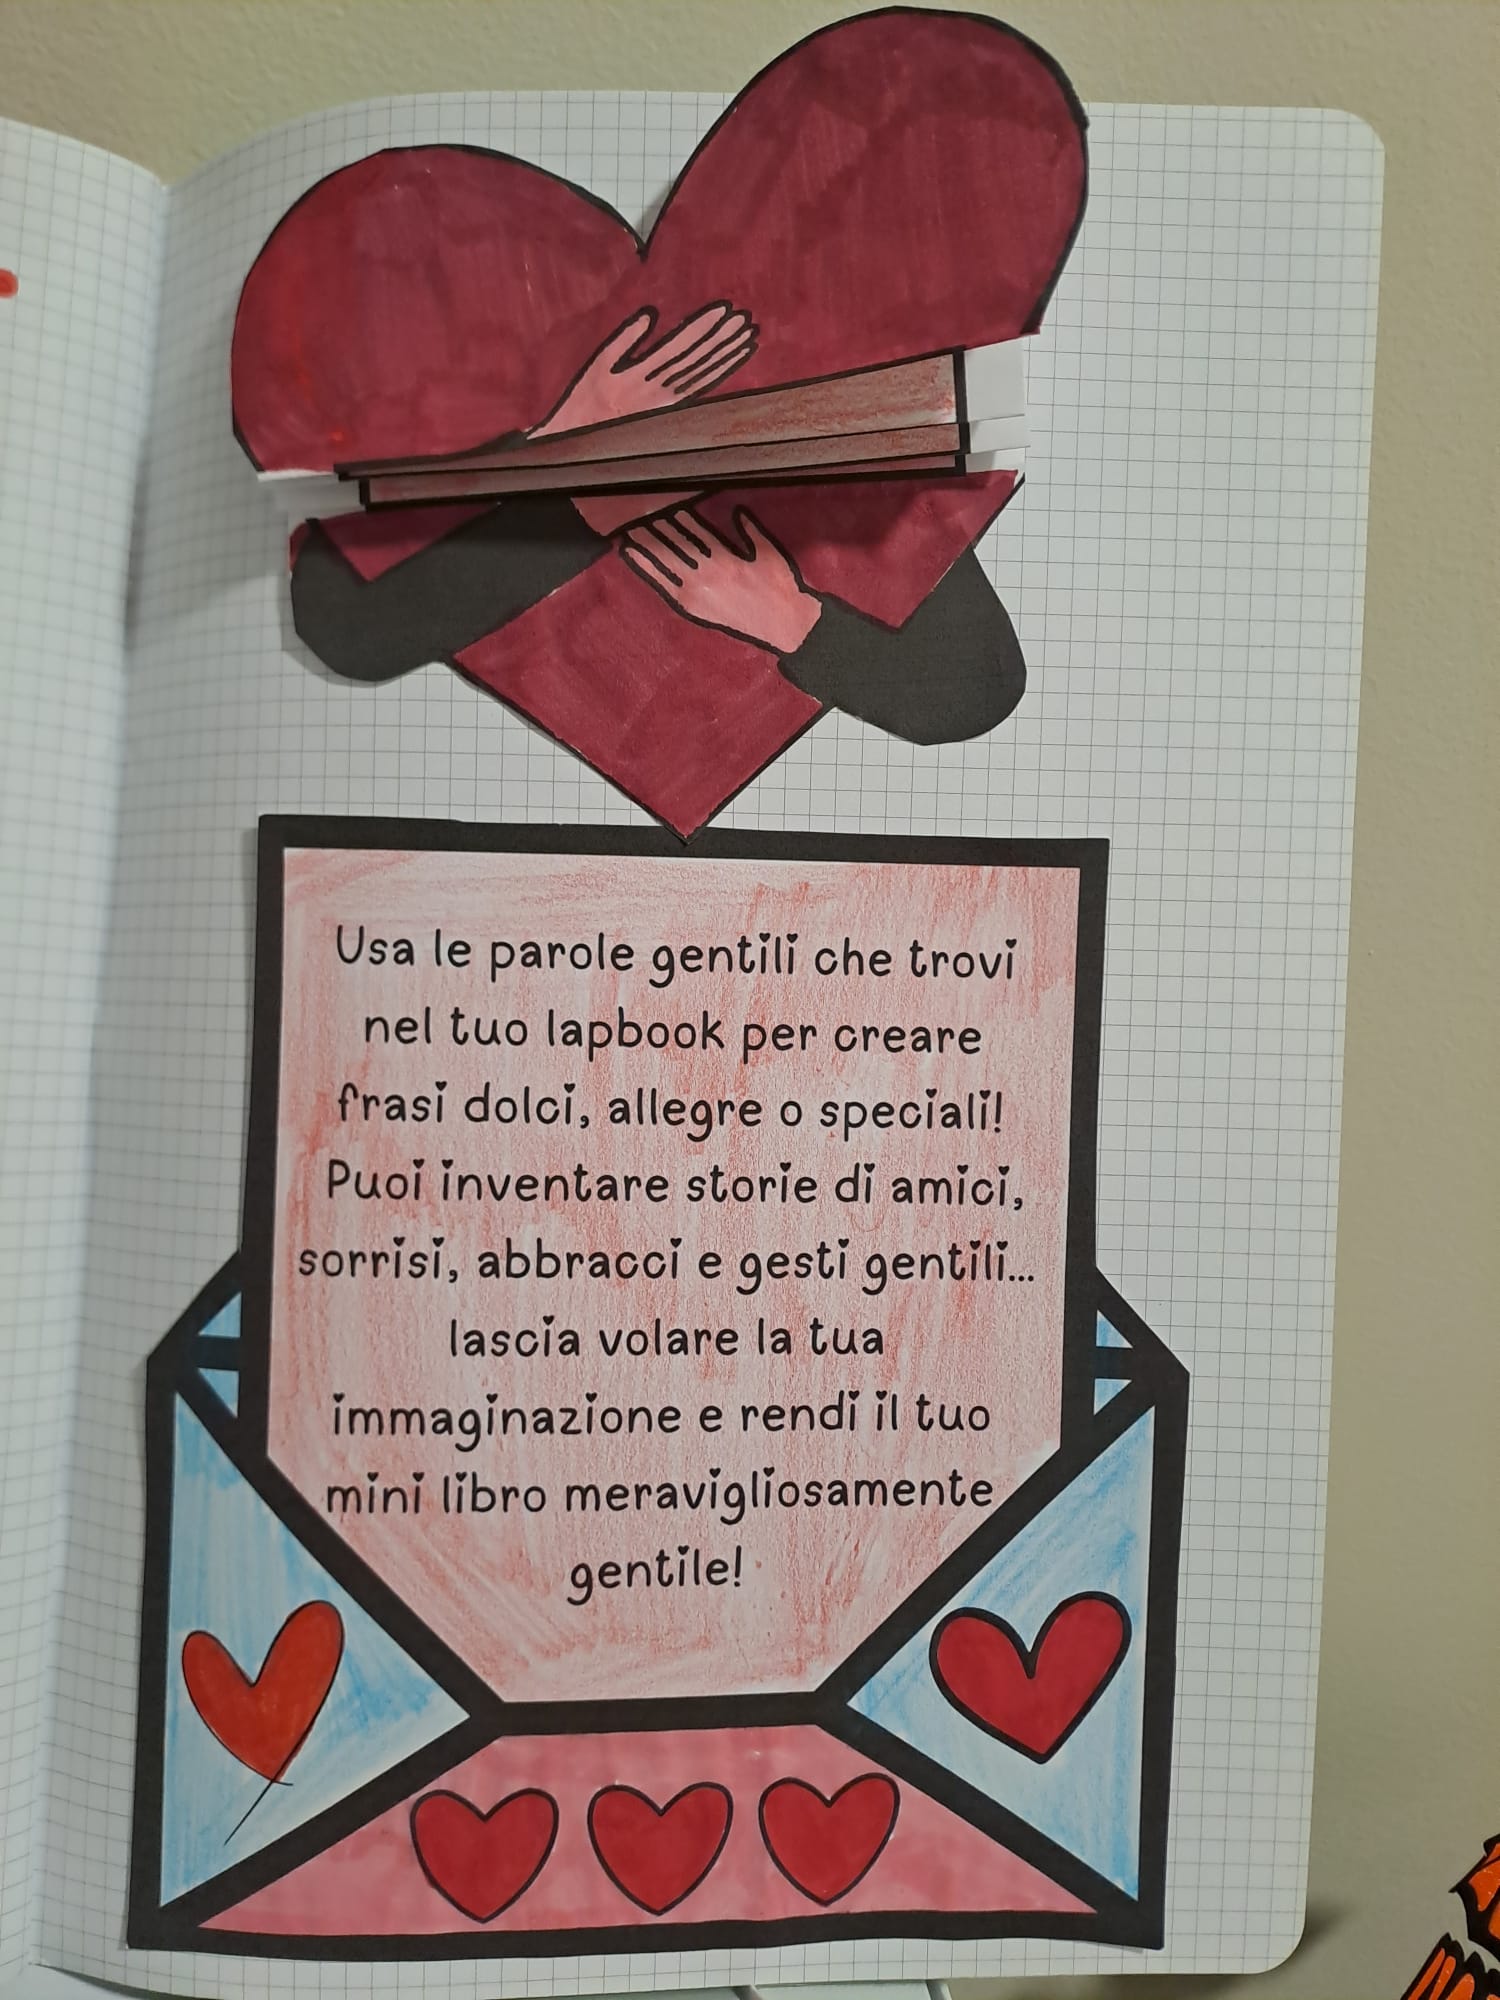 Usa le parole gentili che trovi
nel tuo lapbook per creare
frasi dolci, allegre o speciali!
Puoi inventare storie di amici,
sorrisi, abbracci e gesti gentili...
lascia volare la tua
immaginazione e rendi il tuo
mini libro meravigliosamente
gentile!